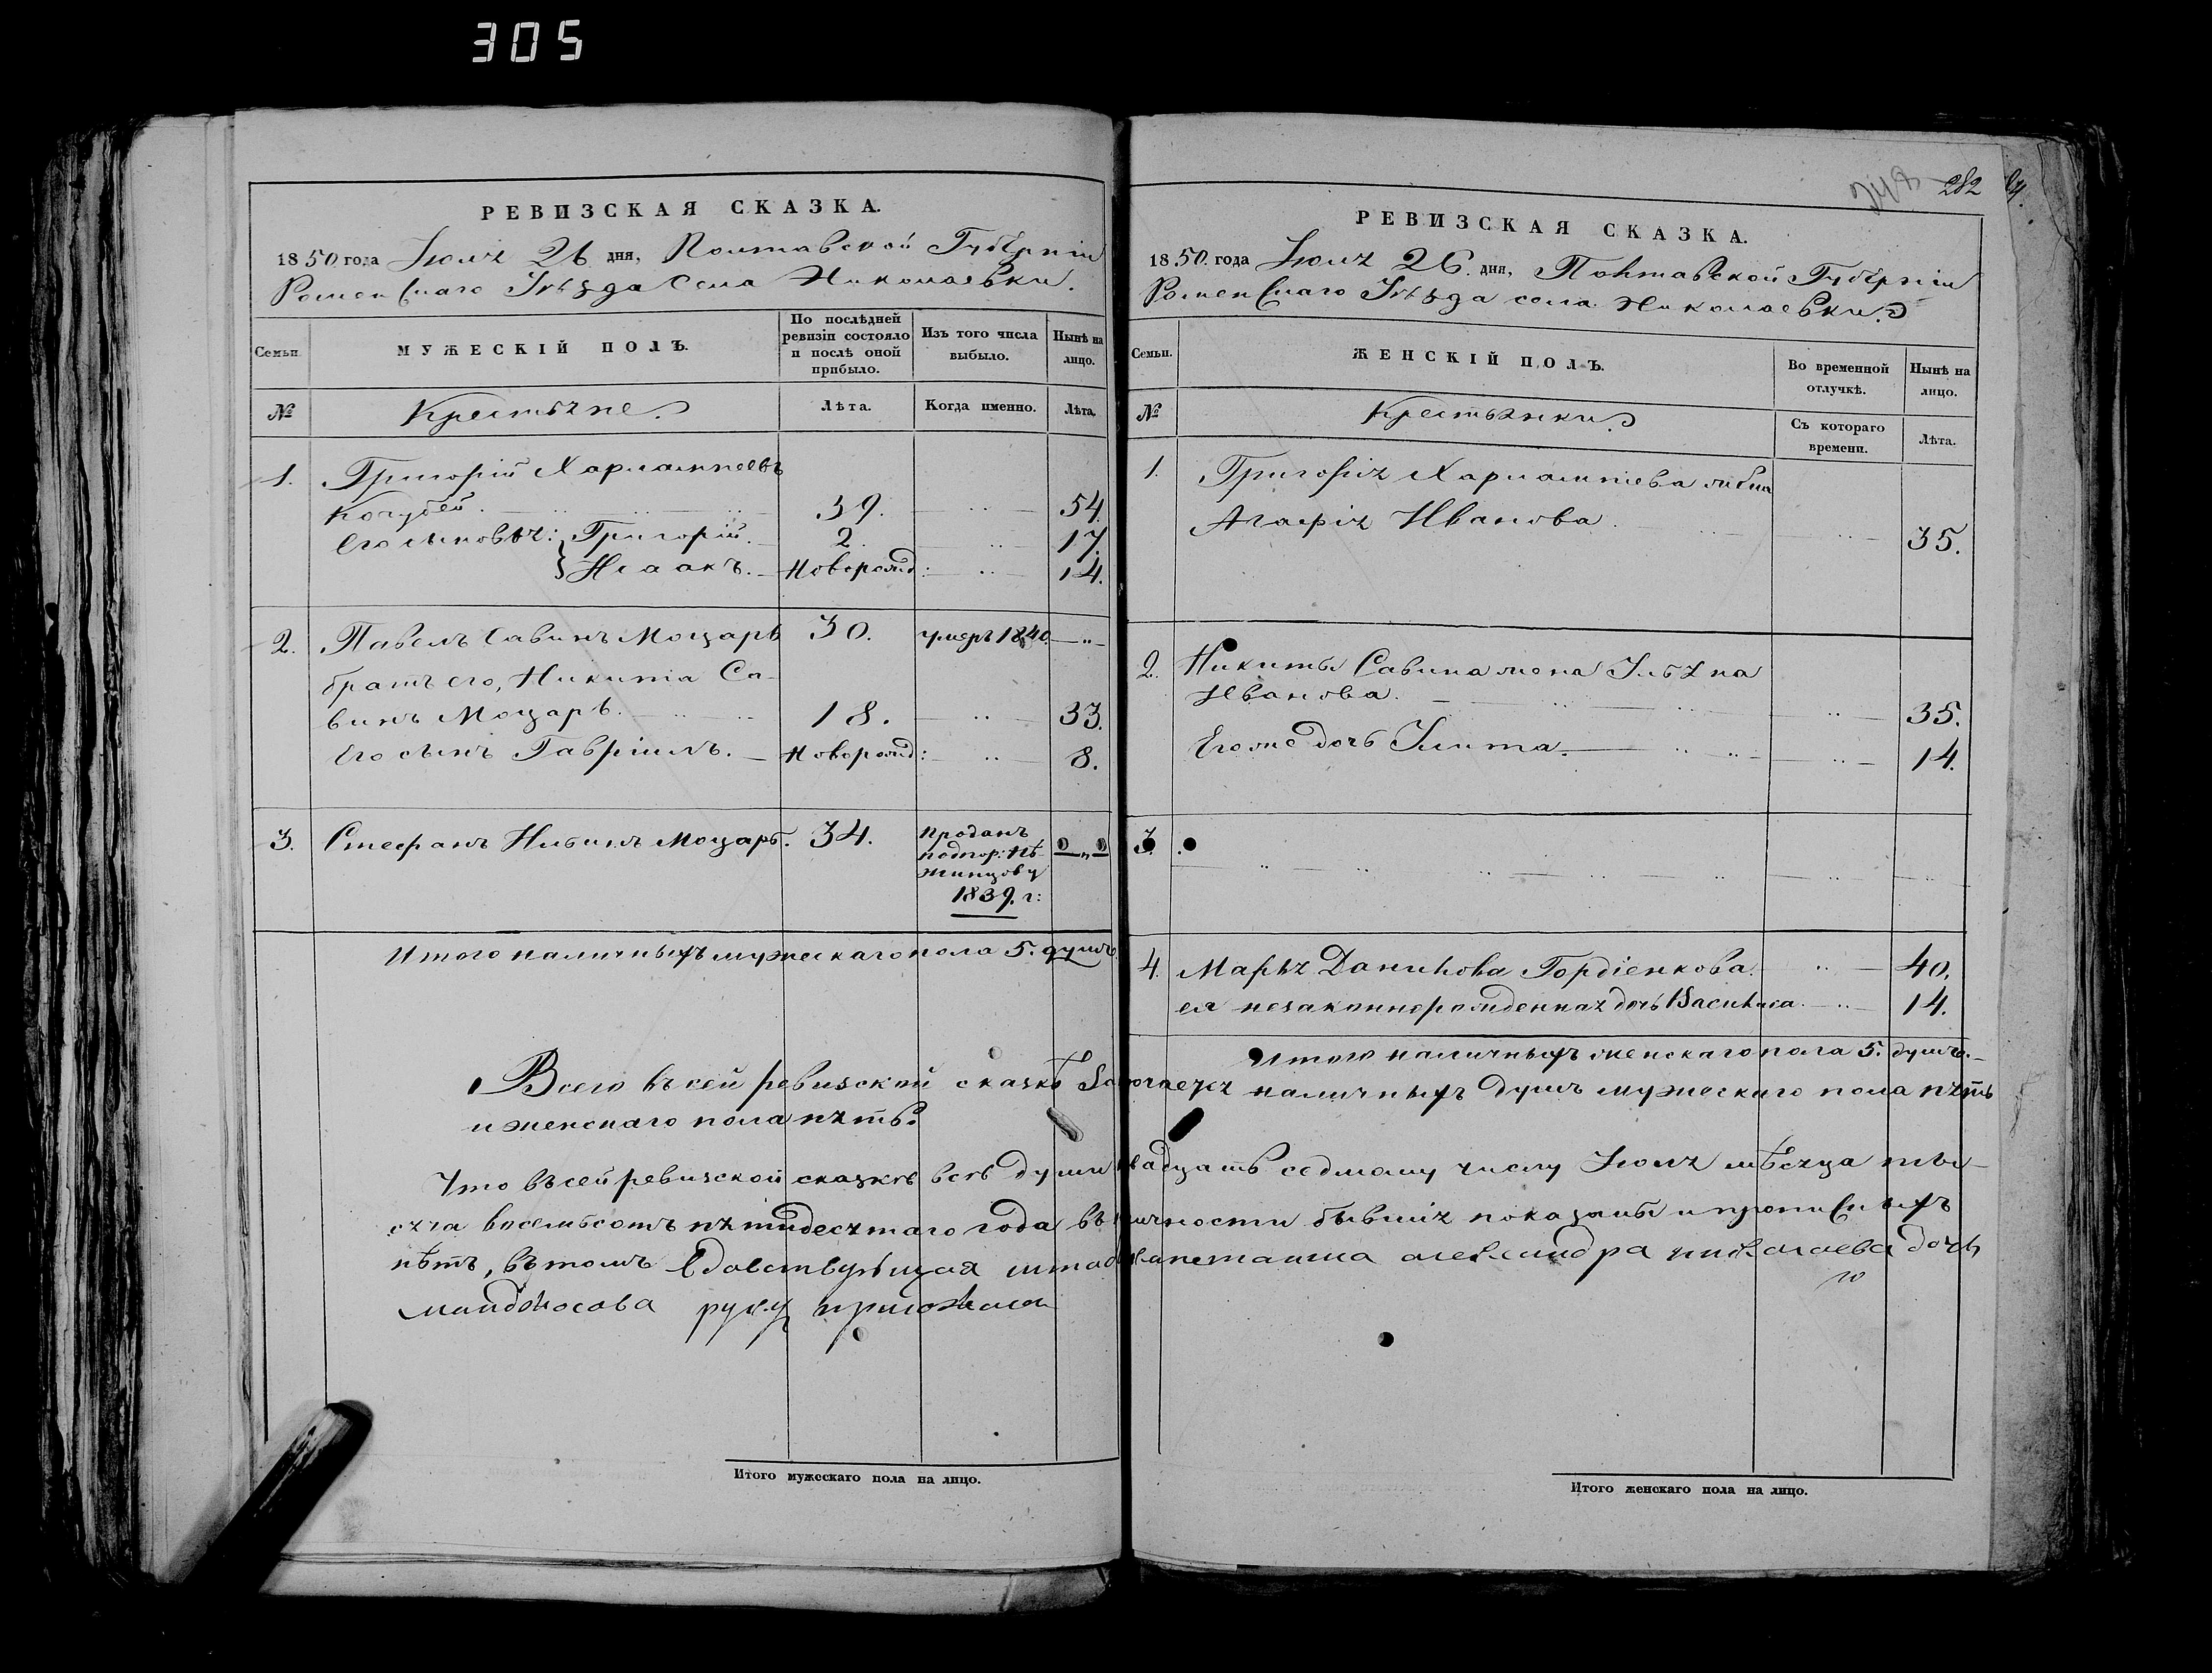 305
РЕВИЗСКАЯ СКАЗКА.
1850 года Іюля 26 дня, Полтавской Губерніи
Роменскаго Уѣзда села Николаевки.
Семьи.
МУЖЕСКІЙ ПОЛЪ.
По послѣдней ревизіи состояло и послѣ оной прибыло.
Изъ того числа выбыло.
Нынѣ на лицо.
№
Крестьяне.
Лѣта.
Когда именно.
Лѣта.
1. Григорій Харлампіевъ
Кочубей. 39. 54.
Его сыновья: Григорій. 2. 17.
Исаакъ. Новорожд: 14.
2. Павелъ Савинъ Моцарь 30. умеръ 1840.
братъ его, Никита Са-
винъ Моцарь. 18. 33.
Его сынъ Гавріилъ. Новорожд: 8.
3. Стефанъ Моцарь. 34. Проданъ
1839. г:
Итого наличныхъ мужескаго пола 5. душъ
282
РЕВИЗСКАЯ СКАЗКА.
1850. года Іюля 26. дня, Полтавской Губерніи
Роменскаго Уѣзда села Николаевки.
Семьи.
ЖЕНСКІЙ ПОЛЪ.
Во временной отлучкѣ.
Нынѣ на лицо.
№
Крестьянки.
Съ котораго времени.
Лѣта.
1. Григорія Харлампіева жена
Агафія Иванова. 35.
2. Никиты Савина жена Ульяна
Иванова. 35.
Его же дочь Улита. 14.
3.
4. Марья Данилова Гордіенкова. 40.
ея незаконнорожденная дочь Василиса. 14.
Итого наличныхъ женскаго пола 5. душъ.
Всего въ сей ревизской сказкѣ наличныхъ душъ мужескаго пола пять
и женскаго пола пять.
Что въ сей ревизской сказкѣ всѣ души двадцать седмому числу Іюля мѣсяца ты-
сяча восемьсотъ пятидесятаго года въ личности бывшія показаны и прописныхъ
нѣтъ, въ томъ вдовствующая штабскапетанша александра николаева дочь
руку приложила
Итого мужескаго пола на лицо.
Итого женскаго пола на лицо.